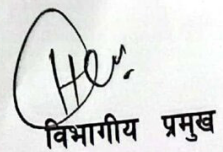 विभागीय प्रमुख